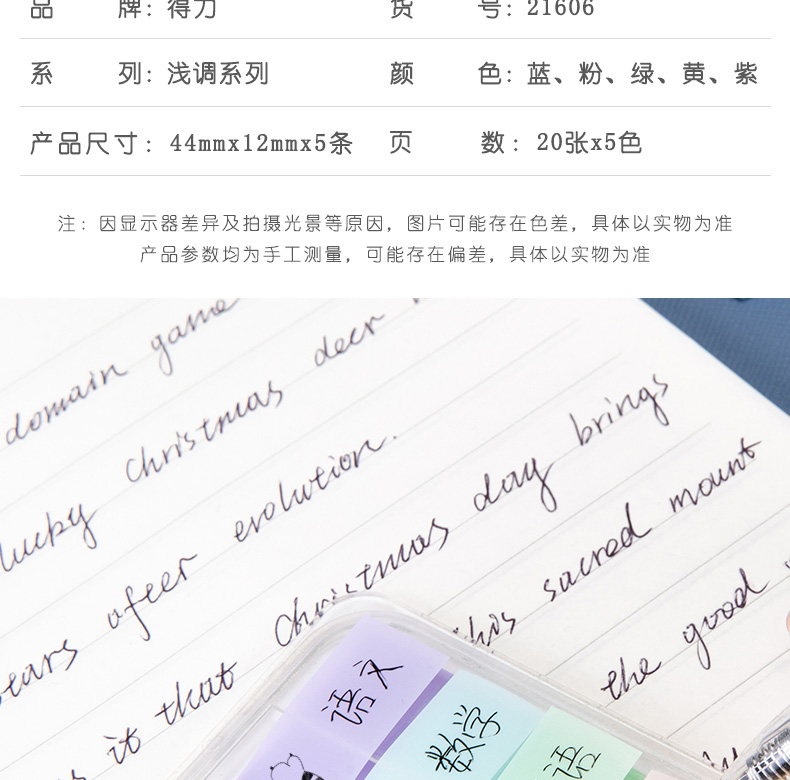 品 牌: 得力 货 号: 21606
系 列: 浅调系列 颜 色: 蓝、粉、绿、黄、紫
产品尺寸: 44mmx12mmx5条 页 数: 20张x5色
注: 因显示器差异及拍摄光景等原因, 图片可能存在色差, 具体以实物为准
产品参数均为手工测量, 可能存在偏差, 具体以实物为准
domain game
lucky christmas deer
ears after evolution.
Christmas day brings
it that this sacred mount
the good
语文
数学
语